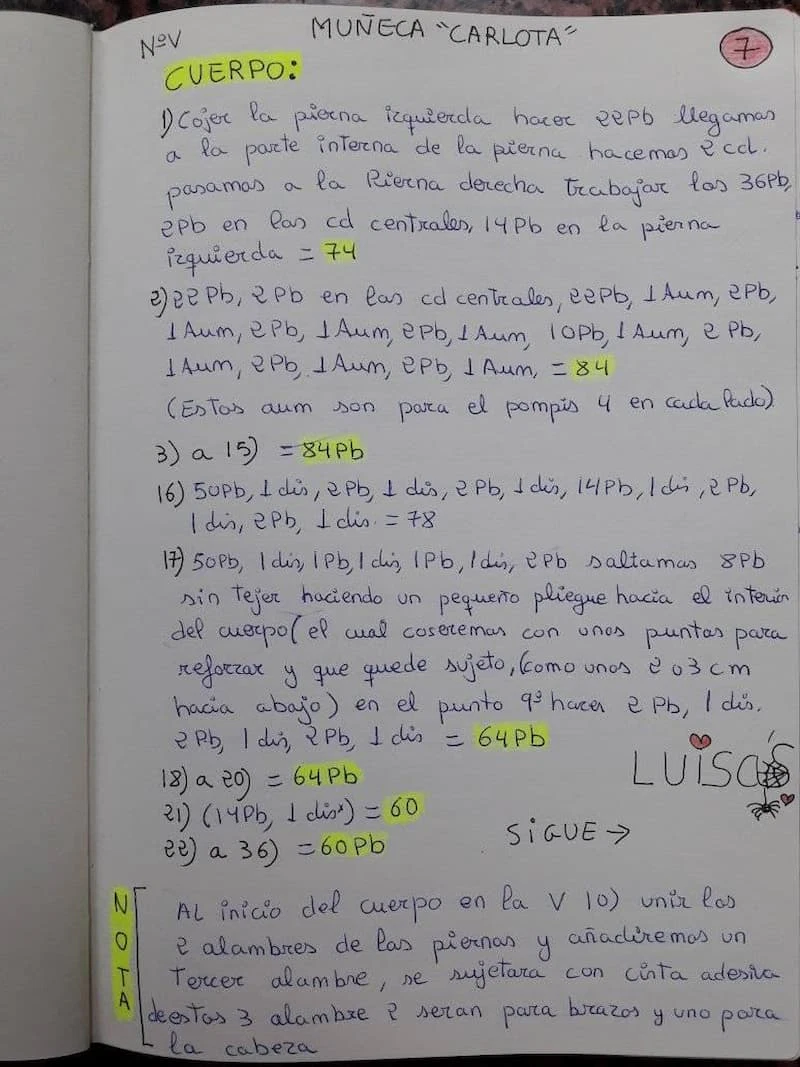 NºV
MUÑECA "CARLOTA"
7
CUERPO:
1) Cojer la pierna izquierda hacer 22Pb llegamos
a la parte interna de la pierna hacemos 2 cd.
pasamos a la Pierna derecha trabajar los 36Pb,
2Pb en las cd centrales, 14Pb en la pierna
izquierda = 74
2) 22Pb, 2Pb en las cd centrales, 22Pb, 1Aum, 2Pb,
1Aum, 2Pb, 1Aum, 2Pb, 1Aum, 10Pb, 1Aum, 2Pb,
1Aum, 2Pb, 1Aum, 2Pb, 1Aum, = 84
(Estos aum son para el pompis 4 en cada lado)
3) a 15) = 84Pb
16) 50Pb, 1 dis, 2Pb, 1 dis, 2Pb, 1dis, 14Pb, 1 dis, 2Pb,
1 dis, 2Pb, 1 dis. = 78
17) 50Pb, 1 dis, 1Pb, 1 dis, 1Pb, 1 dis, 2Pb saltamos 8Pb
sin tejer haciendo un pequeño pliegue hacia el interior
del cuerpo (el cual coseremos con unos puntos para
reforzar y que quede sujeto, (como unos 2 o 3 cm
hacia abajo) en el punto 9º hacer 2 Pb, 1 dis.
2Pb, 1 dis, 2Pb, 1 dis = 64Pb
18) a 20) = 64Pb
21) (14Pb, 1 disˣ) = 60
22) a 36) = 60Pb
LUISA'S
SIGUE →
NOTA
AL inicio del cuerpo en la V 10) unir los
2 alambres de las piernas y añadiremos un
tercer alambre, se sujetara con cinta adesiva
de estos 3 alambre 2 seran para brazos y uno para
la cabeza